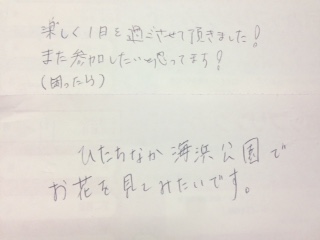 楽しく1日を過ごさせて頂きました!
また参加したいと思ってます!
(困ったら)
ひたちなか海浜公園で
お花を見てみたいです。